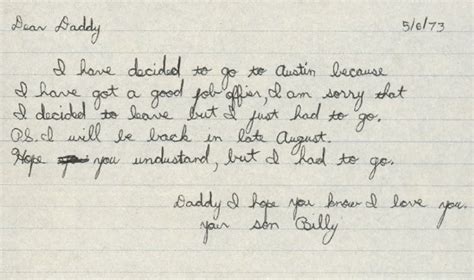 Dear Daddy 5/6/73
I have decided to go to Austin because
I have got a good job offier, I am sorry that
I decided to leave but I just had to go.
P.S. I will be back in late August.
Hope you understand, but I had to go.
Daddy I hope you know I love you.
your son Billy